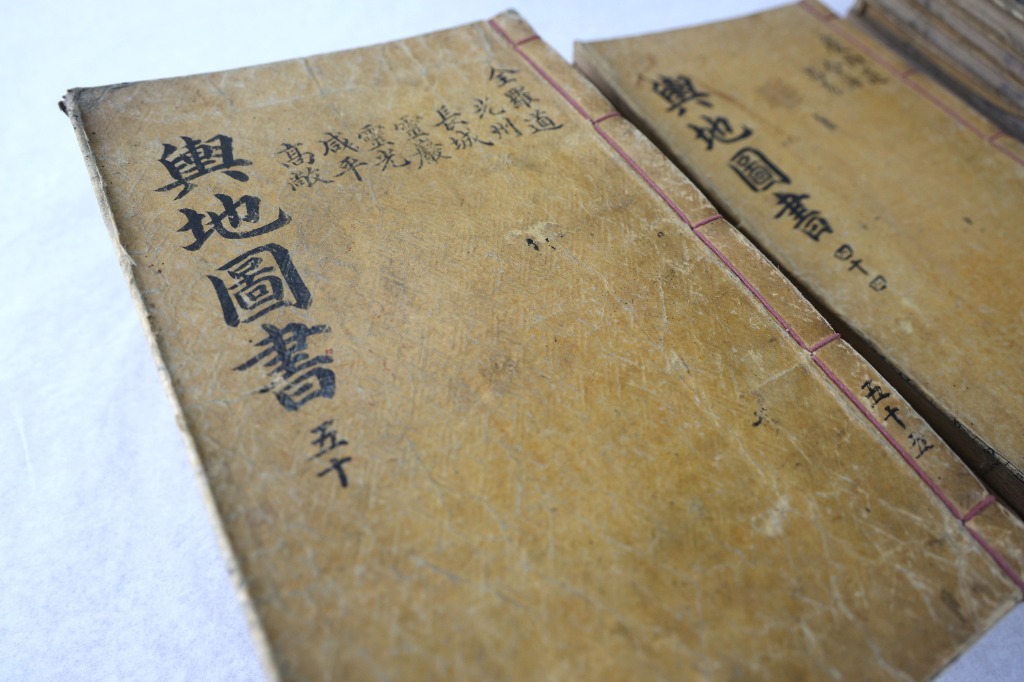 全羅道
州
長城
靈巖
靈光
咸平
高敞
輿地圖書 五十
五十五
輿地圖書 四十四